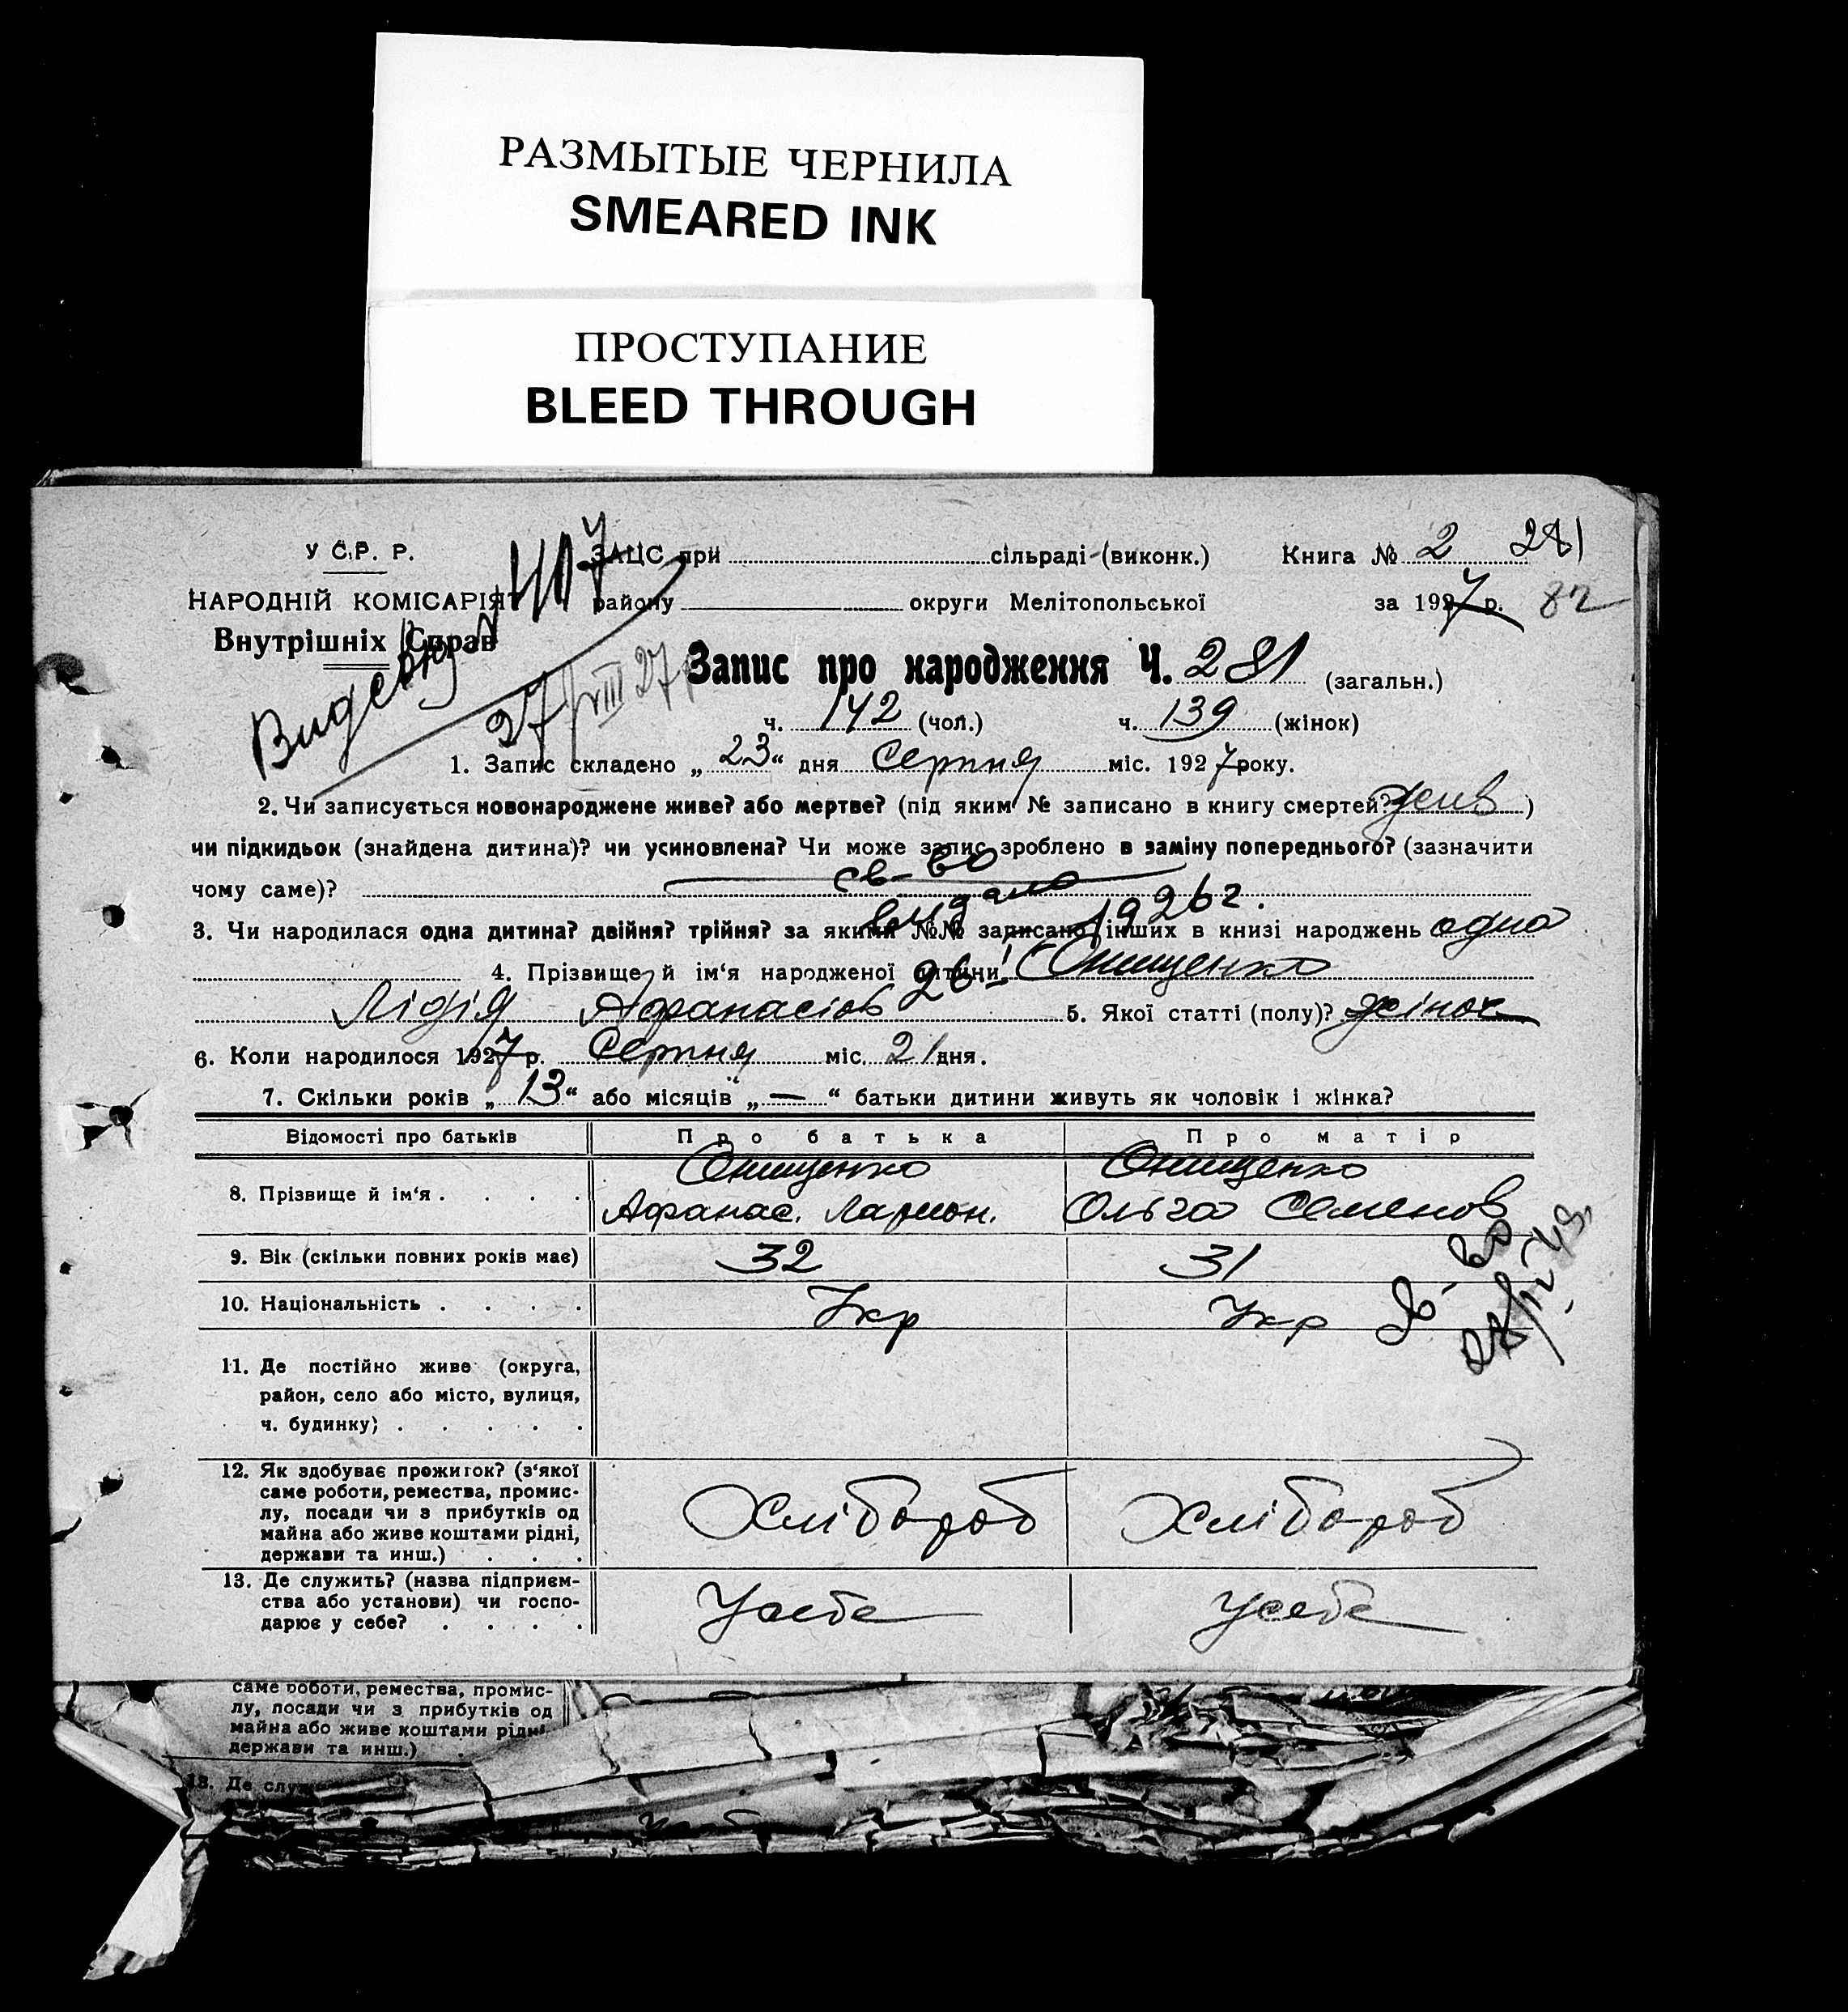 РАЗМЫТЫЕ ЧЕРНИЛА
SMEARED INK
ПРОСТУПАНИЕ
BLEED THROUGH
У С.Р. Р. ЗАЦС при сільраді (виконк.) Книга № 2 281
НАРОДНІЙ КОМІСАРІЯТ 407 району округи Мелітопольської за 1927 р. 82
Внутрішніх Справ
Запис про народження Ч. 281 (загальн.)
27/VIII 27
ч. 142 (чол.) ч. 139 (жінок)
1. Запис складено „ 23 “ дня Серпня міс. 1927 року.
2. Чи записується новонароджене живе? або мертве? (під яким № записано в книгу смертей? жив)
чи підкидьок (знайдена дитина)? чи усиновлена? Чи може запис зроблено в заміну попереднього? (зазначити
чому саме)?
св-во
видано 1926 г.
3. Чи народилася одна дитина? двійня? трійня? за якими №№ записано інших в книзі народжень одна
4. Прізвище й ім'я народженої дитини Онищенко
Лідія Афанасіов 5. Якої статті (полу)? жіноч
6. Коли народилося 1927 р. Серпня міс. 21 дня.
7. Скільки років „ 13 “ або місяців „ — “ батьки дитини живуть як чоловік і жінка?
Відомості про батьків Про батька Про матір
8. Прізвище й ім'я . . . . Онищенко Афанас. Ларион. Онищенко Ольга Семенов
9. Вік (скільки повних років має) 32 31
10. Національність . . . . Укр Укр
11. Де постійно живе (округа,
район, село або місто, вулиця,
ч. будинку) . . . . .
12. Як здобуває прожиток? (з'якої
саме роботи, ремества, промис-
лу, посади чи з прибутків од
майна або живе коштами рідні,
держави та инш.) . . .
Хлібороб Хлібороб
13. Де служить? (назва підприєм-
ства або установи) чи госпо-
дарює у себе? . . . .
У себе У себе
саме роботи, ремества, промис-
лу, посади чи з прибутків од
майна або живе коштами рідні
держави та инш.)
13. Де служ